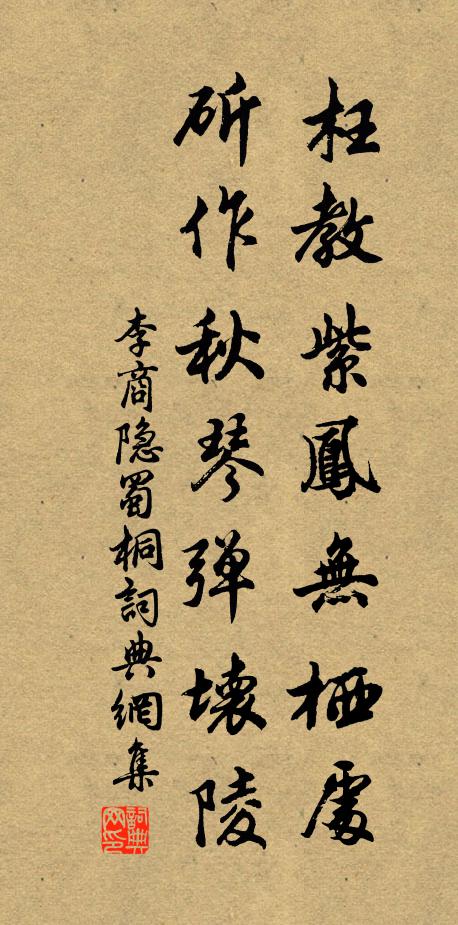 枉教紫鳳無栖處
斫作秋琴弹壞陵
李商隐蜀桐詞典網集
詞典網印